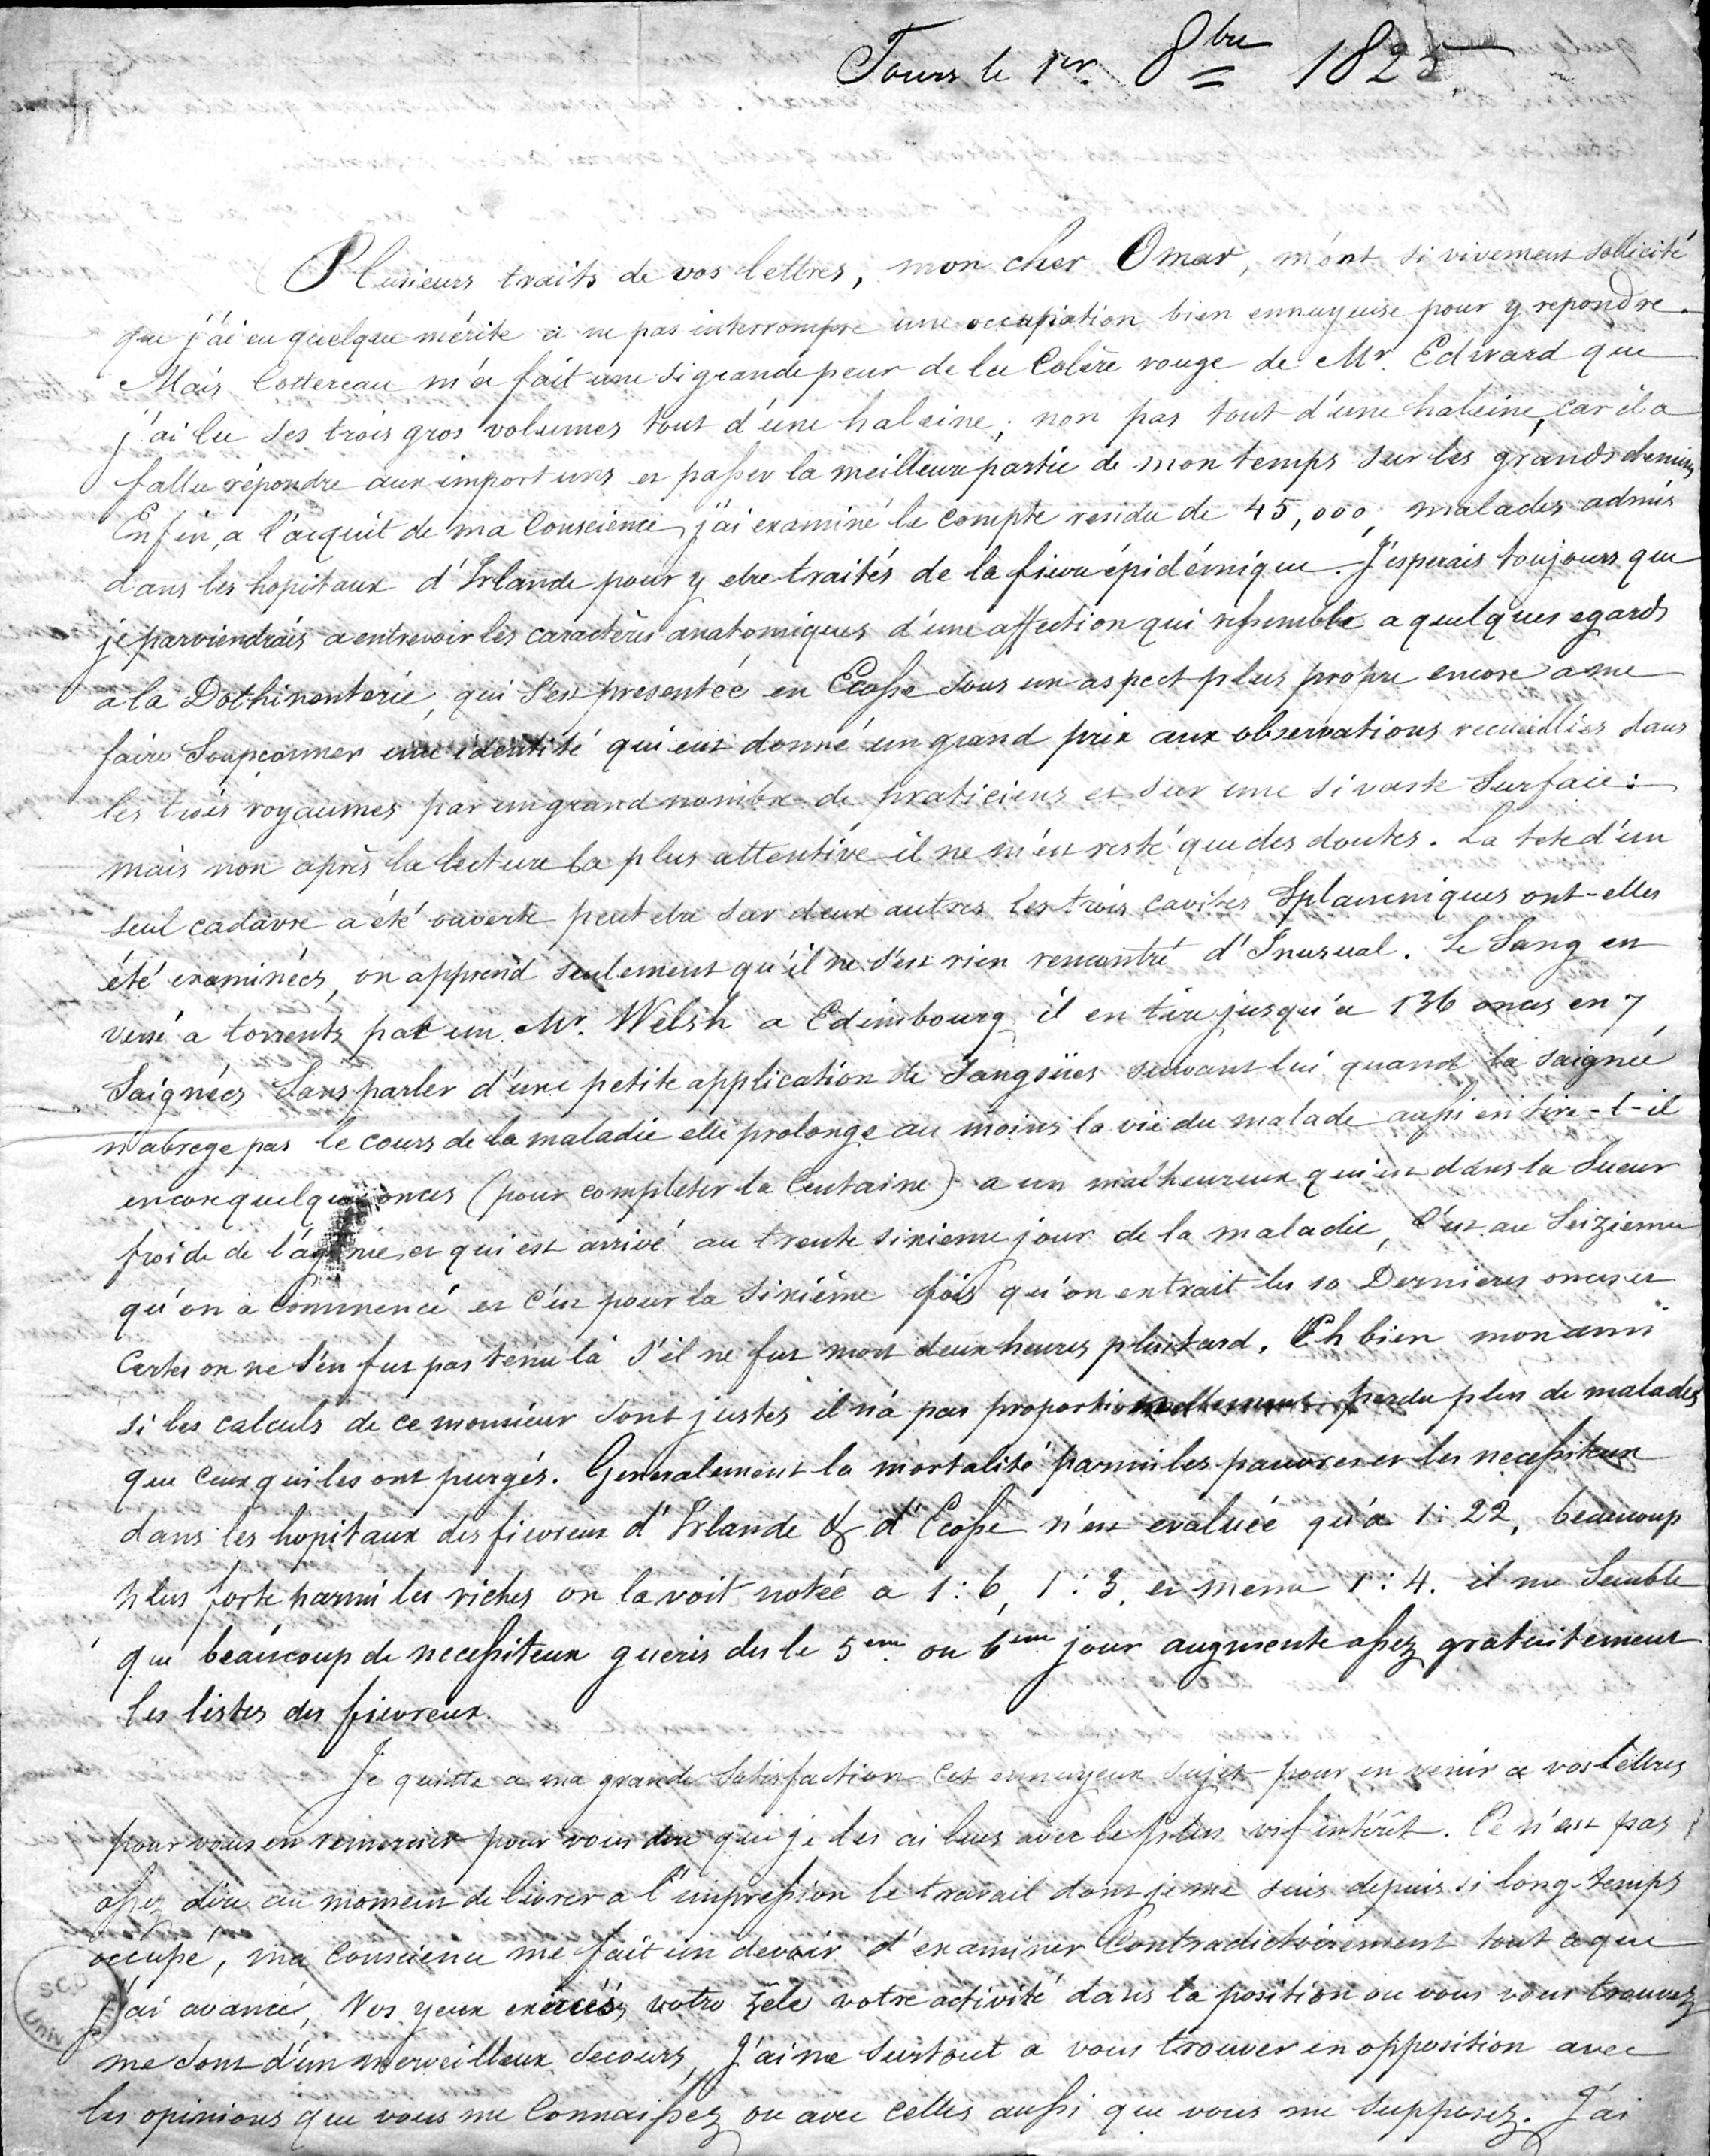 Tours le 1er 8bre 1825
Plusieurs traits de vos lettres, mon cher Omar, m'ont si vivement sollicité
que j'ai eu quelque mérite a ne pas interrompre une occupation bien ennuyeuse pour y repondre.
Mais Cottereau m'a fait une si grande peur de la Colère rouge de Mr. Edward que
j'ai lu ses trois gros volumes tout d'une haleine; non pas tout d'une haleine, car il a
fallu répondre aux importuns et passer la meilleure partie de mon temps sur les grands chemins
Enfin, a l'acquit de ma Conscience j'ai examiné le compte rendu de 45,000, malades admis
dans les hopitaux d'Irlande pour y etre traités de la fievre épidémique. J'esperais toujours que
je parviendrais a entrevoir les caractères anatomiques d'une affection qui ressemble a quelques egards
a la Dothinenterie, qui s'est presentée en Ecosse sous un aspect plus propre encore a me
faire Soupconner une identité qui eut donné un grand prix aux observations recueillies dans
les trois royaumes par un grand nombre de praticiens et sur une si vaste Surface:
mais non après la lecture la plus attentive il ne m'est resté que des doutes. La tete d'un
seul cadavre a été ouverte peut etre sur deux autres les trois cavités Splancniques ont-elles
été examinées, on apprend seulement qu'il ne s'est rien rencontré d'Inusual. Le Sang est
versé a torrents par un Mr. Welsh a Edimbourg il en tire jusqu'a 136 onces en 7
Saignées Sans parler d'une petite application de Sangsües suivant lui quand la saignée
n'abrege pas le cours de la maladie elle prolonge au moins la vie du malade aussi en tire-t-il
encore quelques onces (pour completer la Centaine) a un malheureux qui est dans la Sueur
froide de l'agonie et qui est arrivé au trente sixieme jour de la maladie, C'est au Seizieme
qu'on a commencé et c'est pour la Sixième fois qu'on extrait les 10 Dernieres onces et
Certes on ne s'en fut pas tenu là s'il ne fut mort deux heures plus tard. Eh bien mon ami
si les calculs de ce monsieur sont justes il n'a pas proportionnellement perdu plus de malades
que ceux qui les ont purgés. Generalement la mortalité parmi les pauvres et les necessiteux
dans les hopitaux des fievreux d'Irlande & d'Ecosse n'est evaluée qu'à 1: 22, beaucoup
plus forte parmi les riches on la voit notée a 1: 6, 1: 3, et meme 1: 4. il me Semble
que beaucoup de necessiteux gueris des le 5eme ou 6eme jour augmente assez gratuitement
les listes des fievreux.
Je quitte a ma grande Satisfaction cet ennuyeux sujet pour en venir a vos lettres
pour vous en remercier pour vous dire que je les ai lues avec le plus vif intérêt. Ce n'est pas
assez dire au moment de livrer a l'impression le travail dont je me suis depuis si long-temps
occupé, ma Conscience me fait un devoir d'examiner Contradictoirement tout ce que
j'ai avancé, Vos yeux exercés, votre zele votre activité dans la position ou vous vous trouvez
me sont d'un merveilleux secours, J'aime surtout a vous trouver en opposition avec
les opinions que vous me Connaissez ou avec celles aussi que vous me supposez. J'ai